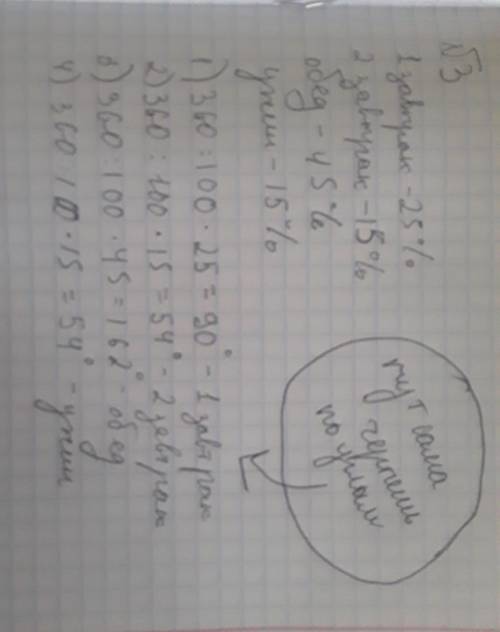 №3
1 завтрак - 25%
2 завтрак - 15%
обед - 45%
ужин - 15%
1) 360 : 100 · 25 = 90° - 1 завтрак
2) 360 : 100 · 15 = 54° - 2 завтрак
3) 360 : 100 · 45 = 162° - обед
4) 360 : 100 · 15 = 54° - ужин
тут сама
чертеши
по углам